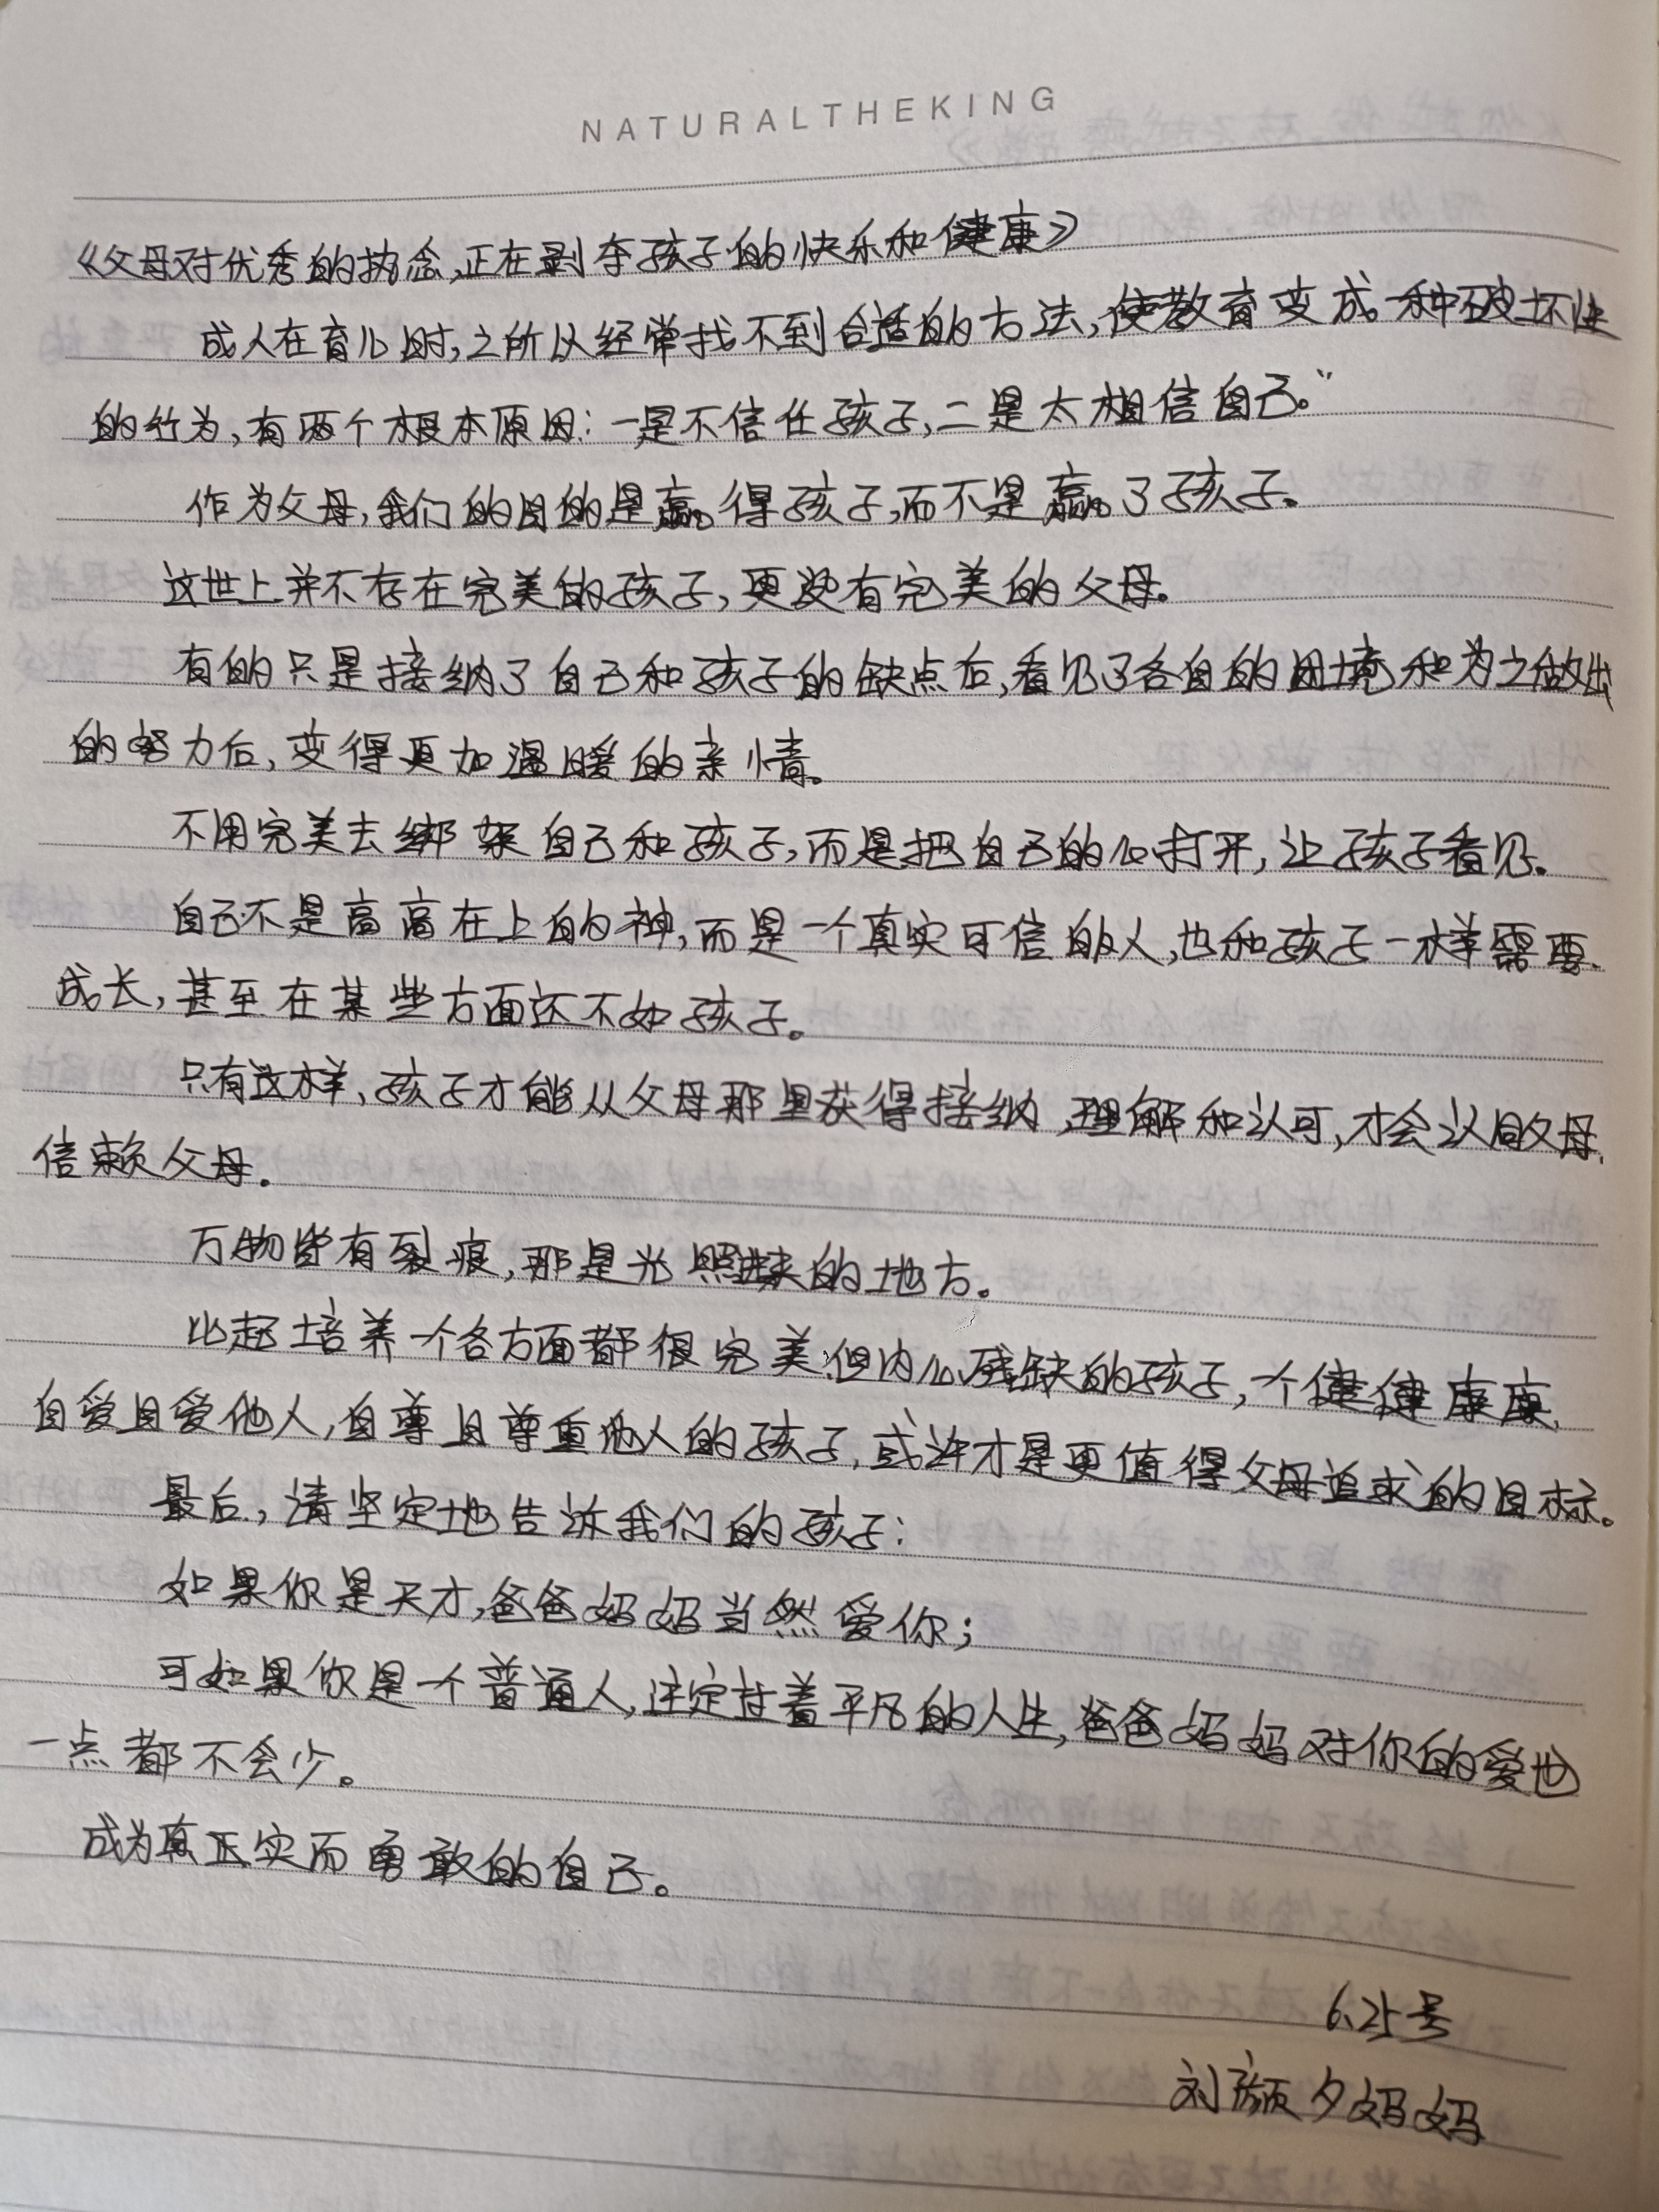 NATURALTHEKING
《父母对优秀的执念,正在剥夺孩子的快乐和健康》
成人在育儿时,之所以经常找不到合适的方法,使教育变成一种破坏性
的行为,有两个根本原因:一是不信任孩子,二是太相信自己。”
作为父母,我们的目的是赢得孩子,而不是赢了孩子。
这世上并不存在完美的孩子,更没有完美的父母。
有的只是接纳了自己和孩子的缺点后,看见了各自的困境和为之做出
的努力后,变得更加温暖的亲情。
不用完美去绑架自己和孩子,而是把自己的心打开,让孩子看见。
自己不是高高在上的神,而是一个真实可信的人,也和孩子一样需要
成长,甚至在某些方面还不如孩子。
只有这样,孩子才能从父母那里获得接纳,理解和认可,才会认同父母,
信赖父母。
万物皆有裂痕,那是光照进来的地方。
比起培养一个各方面都很完美,但内心残缺的孩子,一个健健康康,
自爱且爱他人,自尊且尊重他人的孩子,或许才是更值得父母追求的目标。
最后,请坚定地告诉我们的孩子:
如果你是天才,爸爸妈妈当然爱你;
可如果你是一个普通人,注定过着平凡的人生,爸爸妈妈对你的爱也
一点都不会少。
成为真正实而勇敢的自己。
6.25号
刘颜夕妈妈